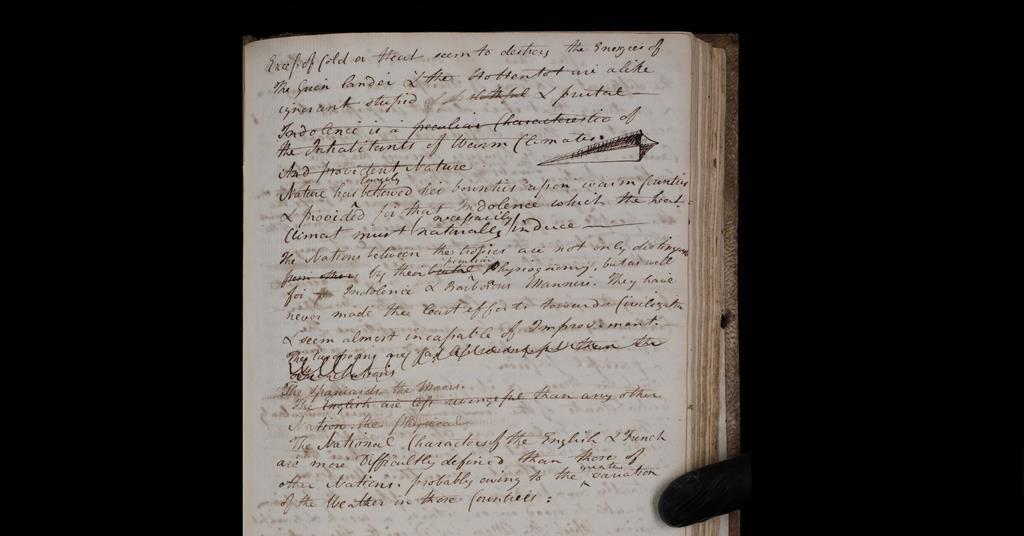 Excess of Cold or Heat seem to destroy the Energies of
The Green lander & the Hottentot are alike
ignorant stupid slothful & brutal —
Indolence is a peculiar Characteristic of
the Inhabitants of Warm Climates.
And provident Nature
Nature has largely bestowed her bounties upon warm Countries
& provided for that Indolence which the heat
Climat must necessarily naturally induce —
The Nations between the tropics are not only distinguish
from others by their brutal peculiar Physiognomy, but as well
for Indolence & Barbarous Manners. They have
never made the least efforts towards Civilizatn
& seem almost incapable of Improvement.
The than the
The Spaniards, the Moors.
The English are less revengeful than any other
Nation. the Physical
The National Characters of the English & French
are more Difficultly defined than those of
other Nations. probably owing to the greater variation
of the Weather in those Countries: